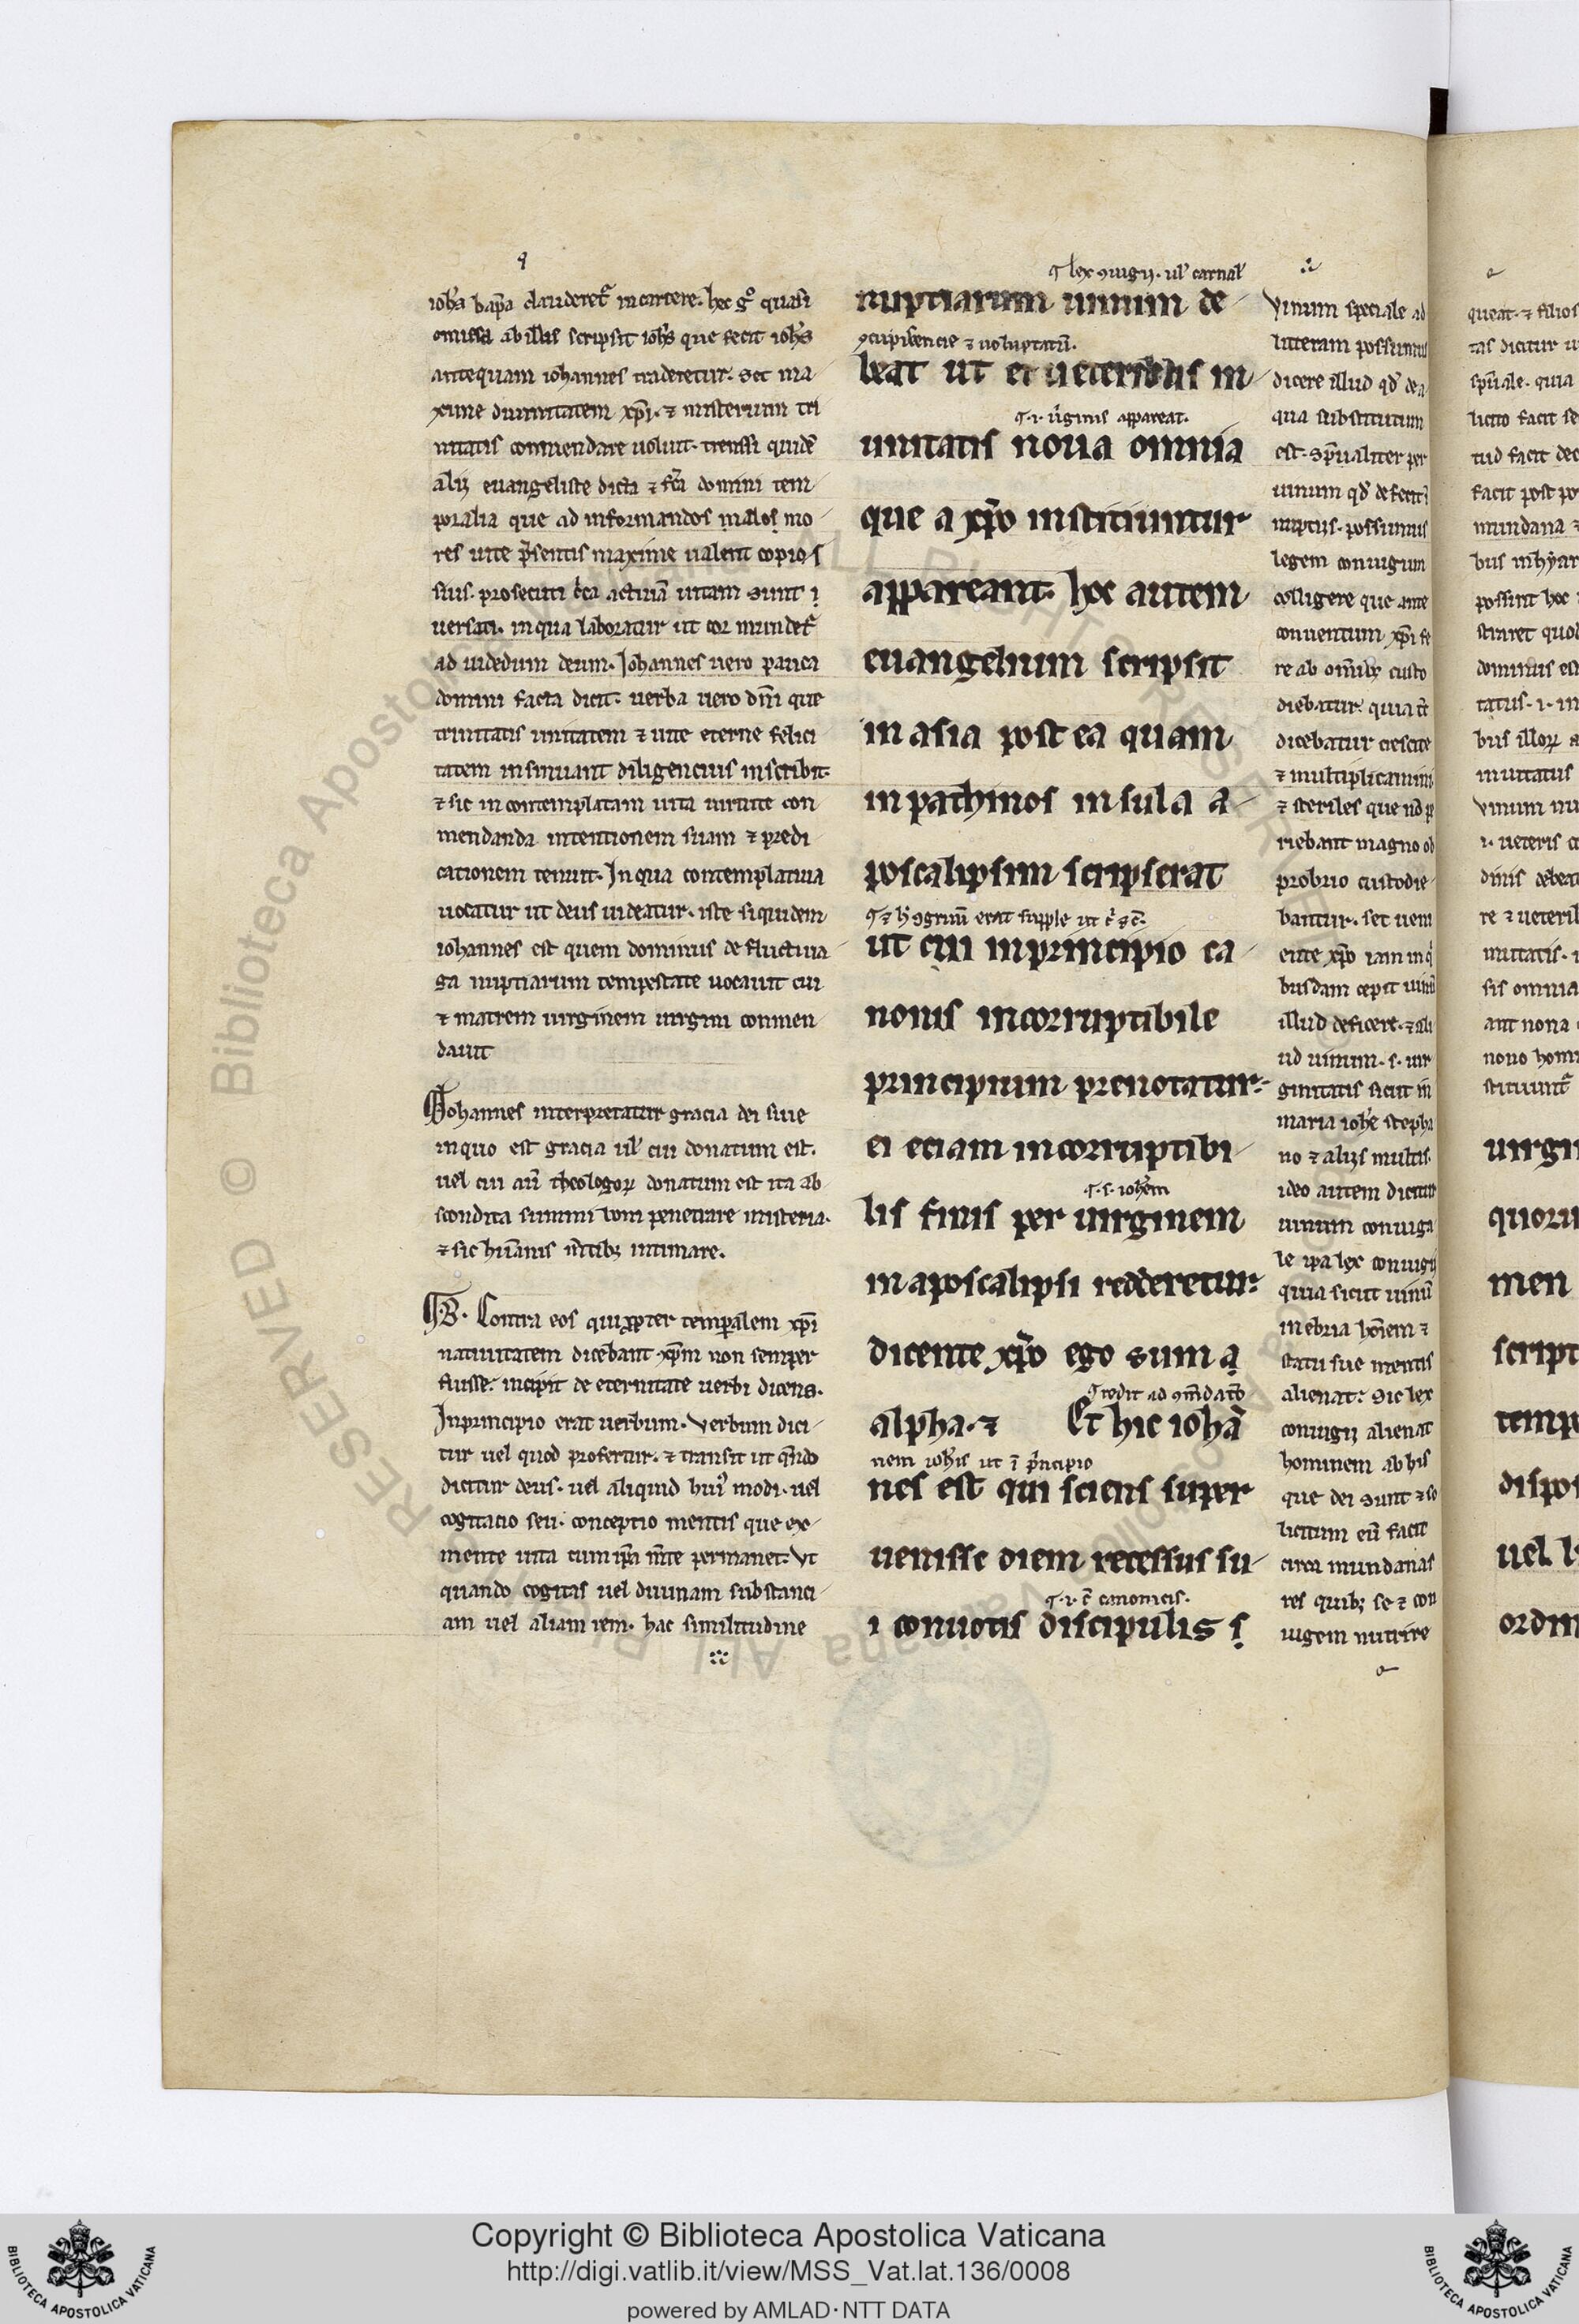 ioħs bap̄a clauderet᷑ in carcere. hec gͦ quasi
omissa ab illis scripsit ioħs que fecit ioħs
antequam iohannes traderetur. Set ma
xime diuinitatem xp̄i. ⁊ misterium tri
nitatis conmendare uoluit. quidē
alij euangeliste dicta ⁊ fc̄a domini tem
poralia que ad informandos malos mo
res uite p̄sentis maxime ualent copios
sius. prosecuti c̄ca actiuā uitam sunt
uersati. in qua laboratur ut cor mundet᷑
ad uidedum deum. Iohannes uero pauca
domini facta dicit. uerba uero dn̄i que
trinitatis unitatem ⁊ uite eterne felici
tatem insinuant diligencius inscribit.
⁊ sic in contemplatam uita uirtute con
mendanda intentionem suam ⁊ predi
cationem tenuit. In qua contemplatiua
uocatur ut deus uideatur. iste siquidem
iohannes est quem dominus de fluctiua
ga nuptiarum tempestate uocauit cui
⁊ matrem uirginem uirgini conmen
dauit
Iohannes interpretatur gracia dei siue
in quo est gracia ul̄ cui donatum est.
uel cui donatum est ita ab
scondita summi boni penetrare misteria.
⁊ sic hūanis m̄tibꝫ intimare.
B. Contra eos qui ꝓpter temporalem xp̄i
natiuitatem dicebant xp̄m non semper
fuisse. incipit de eternitate uerbi dicens.
In principio erat uerbum. Verbum dici
tur uel quod profertur. ⁊ transit ut qn̄do
dicitur deus. uel aliquid hui᷒ modi. uel
cogitacio seu conceptio mentis que ex
mente uita cum ip̄a m̄te permanet. Vt
quando cogitas uel diuinam substanci
am uel aliam rem. hac similitudine
lex ꝯiugij. ul̄ carnal̄
nuptiarum uinum de
ꝯcupiscencie ⁊ uoluptatū.
beat ut et ueteribus in
.i. u̇ginis appareat.
unitatis noua omnia
que a xp̄o instituuntur
appareant. hoc autem
euangelium scripsit
in asia post ea quam
in pathmos insula a
poscalipsim scripserat
ut cui in principio ca
nonis incorruptibile
principium prenotatur.
ei eciam incorruptibi
.s. ioħem
lis finis per uirginem
in aposcalipsi redderetur.
dicente xp̄o ego sum
redit ad
alpha. ⁊ Et hic iohā
nem ioħis ut ī p̄ncipio
nes est qui sciens super
uenisse diem recessus su
.i.
i conuotis discipulis s
Vinum speciale ad
litteram possumus
dicere illud qd̄ de a
qua substitutum
est. Sp̄ualiter per
uinum qd̄ defecit ī
nuptijs. possumus
legem coniugium
colligere que ante
conuentum xp̄i fe
re ab om̄ibꝫ custo
diebatur. quia
dicebatur crescite
⁊ multiplicamini
⁊ steriles que nō p
riebant magno ob
probrio custodie
bantur. set ueni
ente xp̄o iam in q
busdam cepit uinū
illud deficere. ⁊ ali
ud uinum. s. uir
ginitatis sicut in
maria ioħe stepha
no ⁊ alijs multis.
ideo autem dicitur
uinum coniuga
le ipa lex coniugij
quia sicut uinū
inebria hoīem ⁊
statu sue mentis
alienat: Sic lex
coniugij alienat
hominem ab his
que dei sunt ⁊ so
licitum eū facit
circa mundanas
res quibꝫ se ⁊ con
iugem nutrire
queat. ⁊ filios
tas dicitur
sp̄uale. quia
licito facit se
tud facit dec
facit post po
mundana
bus in
possint hoc
stinet quod
dominus est
tatus. i. in
bus illoꝝ a
mutatus
Vinum nu
i. ueteris
dinis debeat
re ⁊ ueterib
mutatis.
sis omnia
ant noua
nouo homi
stituunt᷑
uirgi
quoru
men
script
tempo
dispos
uel l
ordin
Biblioteca Apostolica Vaticana
ALL RIGHTS RESERVED ©
Copyright © Biblioteca Apostolica Vaticana
http://digi.vatlib.it/view/MSS_Vat.lat.136/0008
powered by AMLAD·NTT DATA
BIBLIOTECA APOSTOLICA VATICANA
BIBLIOTECA APOSTOLICA VATICANA